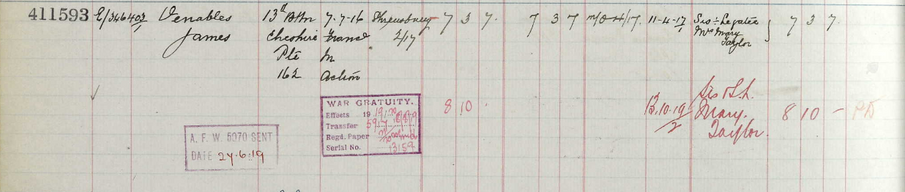 411593 E/346402 Venables 13th Bttn 7-7-16 Shrewsbury 7 3 7. 7 3 7 11-4-17 Sis & Legatee 7 3 7.
James Cheshire France 2/17 Mrs Mary
Pte In Taylor
162 Action
WAR GRATUITY. 8 10 13.10.19 Sis & S.L. 8 10 -
Effects 19
Transfer 2 Mary
Regd. Paper Taylor.
Serial No.
A. F. W. 5070 SENT
DATE 24.6.19